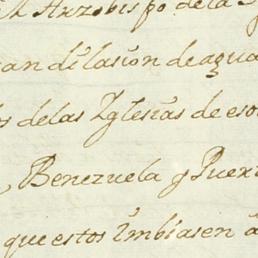 Arzobispo de la
dilasion de agua
de las Yglesias de eso
Benezuela y Puer
que estos Ymbiasen á